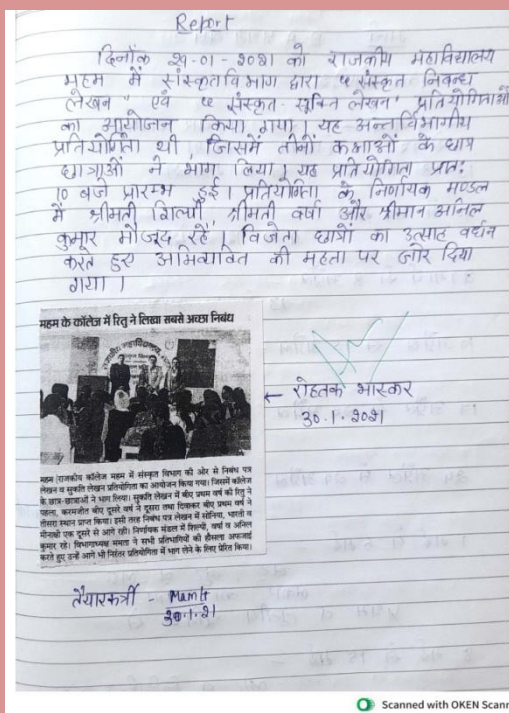 Report
दिनाँक 29-01-2021 को राजकीय महाविद्यालय
महम में संस्कृतविभाग द्वारा "संस्कृत निबन्ध
लेखन" एवं "संस्कृत-सूक्ति लेखन" प्रतियोगिताओं
का आयोजन किया गया। यह अन्तर्विभागीय
प्रतियोगिता थी, जिसमें तीनों कक्षाओं के छात्र
छात्राओं ने भाग लिया। यह प्रतियोगिता प्रातः
10 बजे प्रारम्भ हुई। प्रतियोगिता के निर्णायक मण्डल
में श्रीमती शिल्पी, श्रीमती वर्षा और श्रीमान अनिल
कुमार मौजूद रहें। विजेता छात्रों का उत्साह वर्धन
करते हुए अभिव्यक्ति की महता पर जोर दिया
गया।
महम के कॉलेज में रितु ने लिखा सबसे अच्छा निबंध
राजकीय महाविद्यालय,
← रोहतक भास्कर
30.1.2021
महम | राजकीय कॉलेज महम में संस्कृत विभाग की ओर से निबंध पत्र
लेखन व सुक्ति लेखन प्रतियोगिता का आयोजन किया गया। जिसमें कॉलेज
के छात्र-छात्राओं ने भाग लिया। सुक्ति लेखन में बीए प्रथम वर्ष की रितु ने
पहला, करमजीत बीए दूसरे वर्ष ने दूसरा तथा दिवाकर बीए प्रथम वर्ष ने
तीसरा स्थान प्राप्त किया। इसी तरह निबंध पत्र लेखन में सोनिया, भारती व
मीनाक्षी एक दूसरे से आगे रही। निर्णायक मंडल में शिल्पी, वर्षा व अनिल
कुमार रहे। विभागाध्यक्ष ममता ने सभी प्रतिभागियों की हौसला अफजाई
करते हुए उन्हें आगे भी निरंतर प्रतियोगिता में भाग लेने के लिए प्रेरित किया।
तैयारकर्त्री - Mamta
30.1.21
Scanned with OKEN Scann